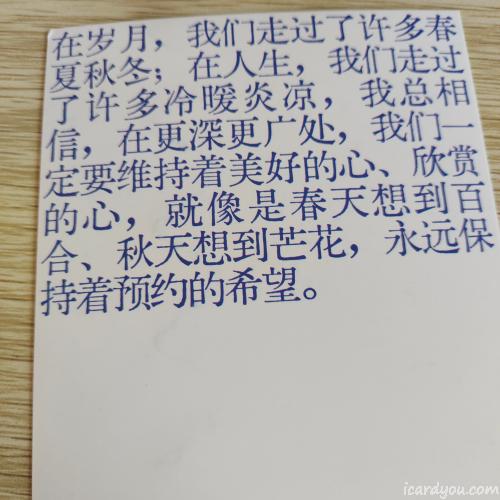 在岁月，我们走过了许多春
夏秋冬；在人生，我们走过
了许多冷暖炎凉，我总相
信，在更深更广处，我们一
定要维持着美好的心、欣赏
的心，就像是春天想到百
合、秋天想到芒花，永远保
持着预约的希望。
icardyou.com